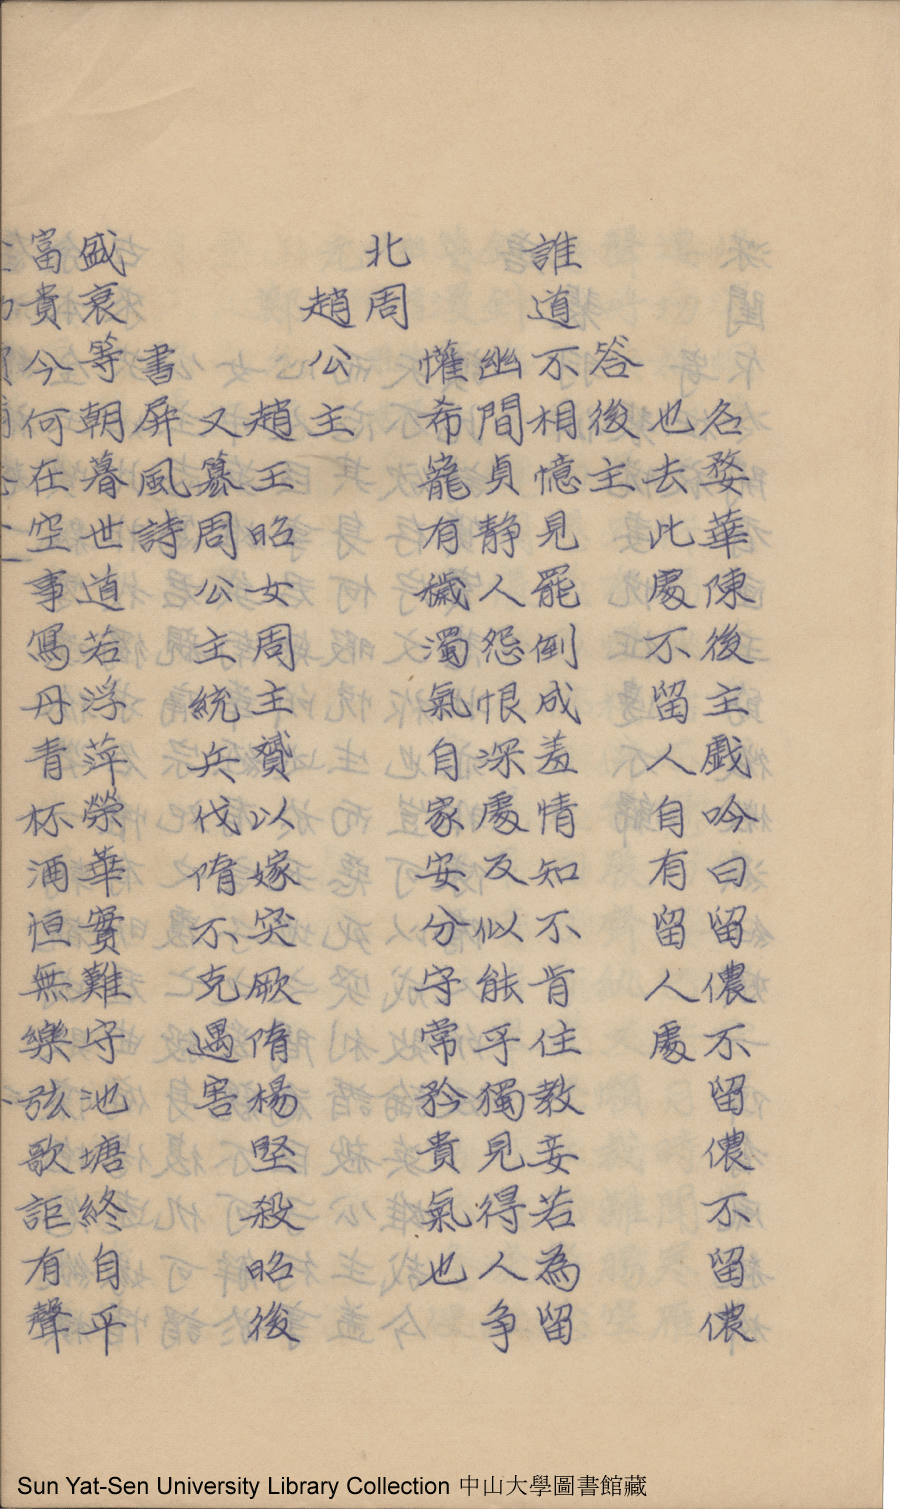 名婺華陳後主戲吟曰留儂不留儂不留儂
也去此處不留人自有留人處
答後主
誰道不相憶見罷倒成羞情知不肯住教妾若為留
幽間貞静人怨恨深處反似能乎獨見得人争
懽希寵有穢濁氣自家安分守常矜貴氣也
北周
趙公主
趙王昭女周主贇以嫁突厥隋楊堅殺昭後
又篡周公主統兵伐隋不克遇害
書屏風詩
盛衰等朝暮世道若浮萍榮華實難守池塘終自平
富貴今何在空事寫丹青杯酒恒無樂弦歌詎有聲
Sun Yat-Sen University Library Collection 中山大學圖書館藏